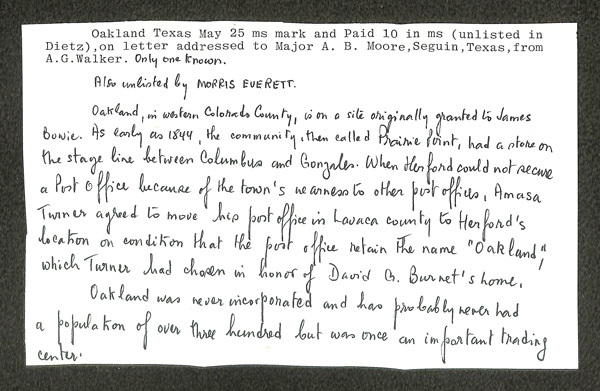 Oakland Texas May 25 ms mark and Paid 10 in ms (unlisted in
Dietz),on letter addressed to Major A. B. Moore,Seguin,Texas,from
A.G.Walker. Only one known.
Also unlisted by MORRIS EVERETT.
Oakland, in western Colorado County, is on a site originally granted to James
Bowie. As early as 1844, the community, then called Prairie Point, had a store on
the stage line between Columbus and Gonzales. When Herford could not secure
a Post Office because of the town's nearness to other post offices, Amasa
Turner agreed to move his post office in Lavaca county to Herford's
location on condition that the post office retain the name "Oakland",
which Turner had chosen in honor of David G. Burnet's home.
Oakland was never incorporated and has probably never had
a population of over three hundred but was once an important trading
center.